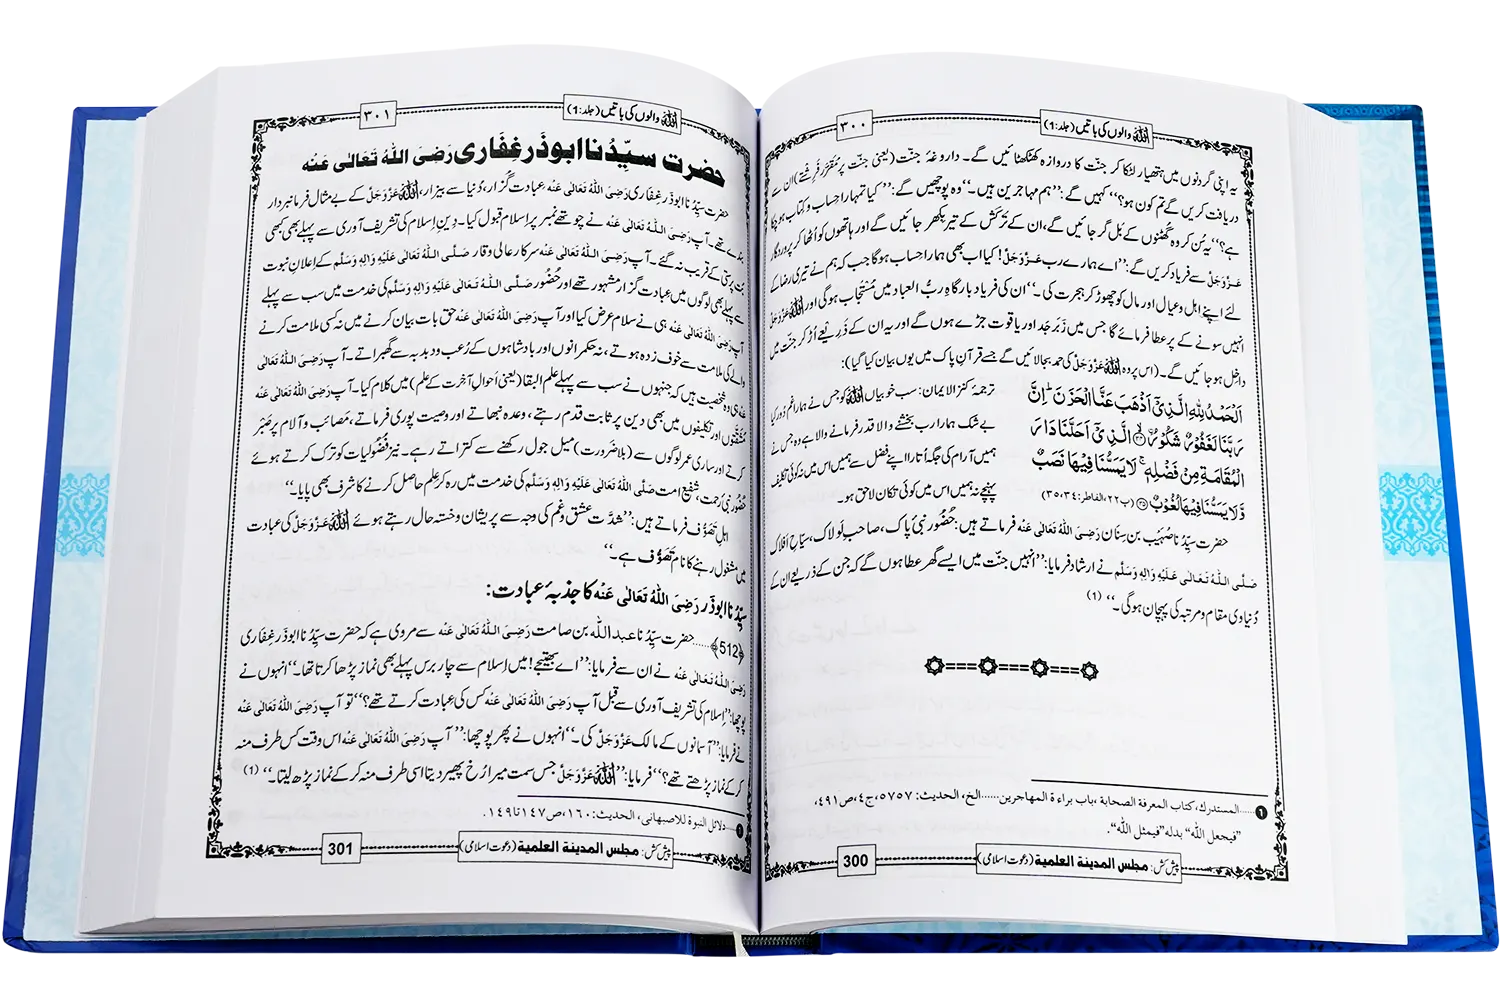 اللہ والوں کی باتیں (جلد:1)
٣٠٠
یہ اپنی گردنوں میں ہتھیار لٹکا کر جنّت کا دروازہ کھٹکھٹائیں گے۔ داروغۂ جنّت (یعنی جنّت پر مُقَرَّر فَرِشتے) ان سے
دریافت کریں گے تم کون ہو؟‘‘ کہیں گے: ’’ہم مہاجرین ہیں۔‘‘ وہ پوچھیں گے: ’’کیا تمہارا حساب و کتاب ہو چکا
ہے؟‘‘ یہ سُن کر وہ گھٹنوں کے بَل گر جائیں گے، ان کے تَرکَش کے تیر بِکھر جائیں گے اور ہاتھوں کو اُٹھا کر پروردگار
عَزَّوَجَلَّ سے فریاد کریں گے: ’’اے ہمارے رب عَزَّوَجَلَّ! کیا اب بھی ہمارا حساب ہوگا جب کہ ہم نے تیری رضا کے
لئے اپنے اہل و عیال اور مال کو چھوڑ کر ہجرت کی۔‘‘ ان کی فریاد بارگاہِ ربُّ العباد میں مُستَجاب ہوگی اور اللہ عَزَّوَجَلَّ
انہیں سونے کے پر عطا فرمائے گا جس میں زَبرجَد اور یاقوت جڑے ہوں گے اور یہ ان کے ذَرِیعے اُڑ کر جنّت میں
داخل ہو جائیں گے۔ (اس پر وہ اللہ عَزَّوَجَلَّ کی حمد بجا لائیں گے جسے قرآنِ پاک میں یوں بیان کیا گیا):
اَلْحَمْدُ لِلّٰهِ الَّذِیْۤ اَذْهَبَ عَنَّا الْحَزَنَؕ-اِنَّ
رَبَّنَا لَغَفُوْرٌ شَكُوْرُ ﰳۙ(۳۴) الَّذِیْۤ اَحَلَّنَا دَارَ
الْمُقَامَةِ مِنْ فَضْلِهٖۚ-لَا یَمَسُّنَا فِیْهَا نَصَبٌ
وَّ لَا یَمَسُّنَا فِیْهَا لُغُوْبٌ(۳۵) (پ۲۲،الفاطر:۳۵،۳۴)
ترجمۂ کنز الایمان: سب خوبیاں اللہ کو جس نے ہمارا غم دُور کیا
بے شک ہمارا رب بخشنے والا قدر فرمانے والا ہے وہ جس نے
ہمیں آرام کی جگہ اُتارا اپنے فضل سے ہمیں اس میں نہ کوئی تکلیف
پہنچے نہ ہمیں اس میں کوئی تکان لاحق ہو۔
حضرت سیِّدُنا صُہَیب بن سِنَان رَضِیَ اللّٰہُ تَعَالٰی عَنْہ فرماتے ہیں: حُضُور نبیٔ پاک، صاحبِ لَولاک، سیّاحِ اَفلاک
صَلَّی اللّٰہُ تَعَالٰی عَلَیْہِ وَاٰلِہٖ وَسَلَّم نے ارشاد فرمایا: ’’انہیں جنّت میں ایسے گھر عطا ہوں گے کہ جن کے ذریعے ان کے
دُنیاوی مقام و مرتبہ کی پہچان ہوگی۔‘‘ (1)
❶.....المستدرك، كتاب المعرفة الصحابة، باب براءة المهاجرين......الخ، الحديث:٥٧٥٧، ج٤، ص٤٩١،
"فيجعل الله" بدله"فيمثل الله".
پیش کش: مجلس المدینة العلمیة (دعوتِ اسلامی)
300
اللہ والوں کی باتیں (جلد:1)
٣٠١
حضرت سیِّدُنا ابوذَر غِفَاری رَضِیَ اللّٰہُ تَعَالٰی عَنْہ
حضرت سیِّدُنا ابوذَر غِفَاری رَضِیَ اللّٰہُ تَعَالٰی عَنْہ عبادت گُزار، دُنیا سے بیزار، اللہ عَزَّوَجَلَّ کے بے مثال فرمانبردار
بندے تھے۔ آپ رَضِیَ اللّٰہُ تَعَالٰی عَنْہ نے چوتھے نمبر پر اسلام قبول کیا۔ دِینِ اِسلام کی تشریف آوری سے پہلے بھی کبھی
بُت پرستی کے قریب نہ گئے۔ آپ رَضِیَ اللّٰہُ تَعَالٰی عَنْہ سرکارِ عالی وقار صَلَّی اللّٰہُ تَعَالٰی عَلَیْہِ وَاٰلِہٖ وَسَلَّم کے اِعلانِ نبوت
سے پہلے بھی لوگوں میں عبادت گزار مشہور تھے اور حُضُور صَلَّی اللّٰہُ تَعَالٰی عَلَیْہِ وَاٰلِہٖ وَسَلَّم کی خدمت میں سب سے پہلے
آپ رَضِیَ اللّٰہُ تَعَالٰی عَنْہ ہی نے سلام عرض کیا اور آپ رَضِیَ اللّٰہُ تَعَالٰی عَنْہ حق بات بیان کرنے میں نہ کسی ملامت کرنے
والے کی ملامت سے خوف زدہ ہوتے، نہ حکمرانوں اور بادشاہوں کے رُعب و دبدبہ سے گھبراتے۔ آپ رَضِیَ اللّٰہُ تَعَالٰی
عَنْہ ہی وہ شخصیت ہیں کہ جنہوں نے سب سے پہلے علم البقا (یعنی اَحوالِ آخرت کے علم) میں کلام کیا۔ آپ رَضِیَ اللّٰہُ تَعَالٰی عَنْہ
مشقّتوں اور تکلیفوں میں بھی دین پر ثابت قدم رہتے، وعدہ نبھاتے اور وصیت پوری فرماتے، مَصائب و آلام پر صَبْر
کرتے اور ساری عمر لوگوں سے (بلا ضرورت) میل جول رکھنے سے کتراتے رہے۔ نیز فُضُولیات کو ترک کرتے ہوئے
حُضُور نبیٔ رحمت، شفیعِ امت صَلَّی اللّٰہُ تَعَالٰی عَلَیْہِ وَاٰلِہٖ وَسَلَّم کی خدمت میں رہ کر عِلم حاصل کرنے کا شرف بھی پایا۔‘‘
اہلِ تَصَوُّف فرماتے ہیں: ’’شدّتِ عشق و غم کی وجہ سے پریشان و خستہ حال رہتے ہوئے اللہ عَزَّوَجَلَّ کی عبادت
میں مشغول رہنے کا نام تَصَوُّف ہے۔‘‘
سیِّدُنا ابوذَر رَضِیَ اللّٰہُ تَعَالٰی عَنْہ کا جذبۂ عبادت:
﴿512﴾.....حضرت سیِّدُنا عبداللّٰہ بن صامت رَضِیَ اللّٰہُ تَعَالٰی عَنْہ سے مروی ہے کہ حضرت سیِّدُنا ابوذَر غِفَاری
رَضِیَ اللّٰہُ تَعَالٰی عَنْہ نے ان سے فرمایا: ’’اے بھتیجے! میں اِسلام سے چار برس پہلے بھی نماز پڑھا کرتا تھا۔‘‘ انہوں نے
پوچھا: ’’اِسلام کی تشریف آوری سے قبل آپ رَضِیَ اللّٰہُ تَعَالٰی عَنْہ کس کی عبادت کرتے تھے؟‘‘ تو آپ رَضِیَ اللّٰہُ تَعَالٰی عَنْہ
نے فرمایا: ’’آسمانوں کے مالک عَزَّوَجَلَّ کی۔‘‘ انہوں نے پھر پوچھا: ’’آپ رَضِیَ اللّٰہُ تَعَالٰی عَنْہ اس وقت کس طرف منہ
کر کے نماز پڑھتے تھے؟‘‘ فرمایا: ’’اللہ عَزَّوَجَلَّ جس سمت میرا رُخ پھیر دیتا اسی طرف منہ کر کے نماز پڑھ لیتا۔‘‘ (1)
❶.....دلائل النبوة للاصبهانى، الحديث:١٦٠، ص١٤٧تا١٤٩.
پیش کش: مجلس المدینة العلمیة (دعوتِ اسلامی)
301